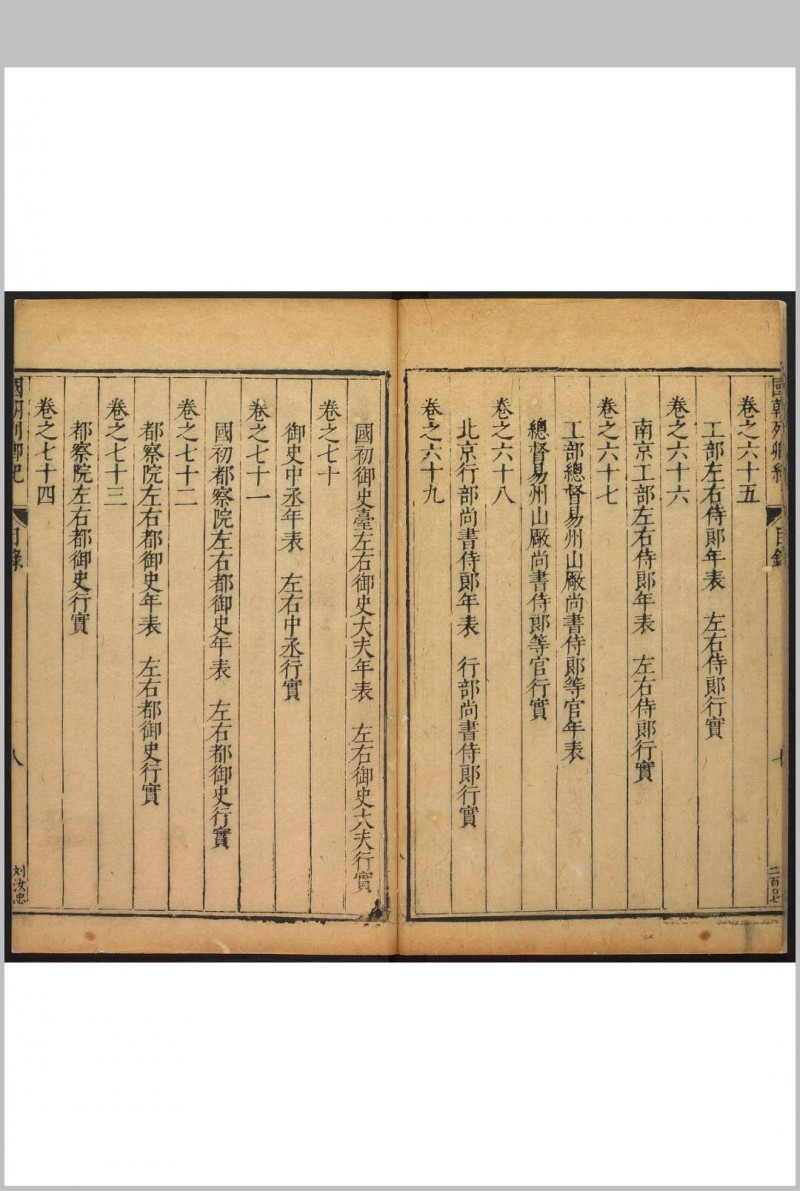 國朝列卿紀
目錄
七
二百〇七
卷之六十五
工部左右侍郎年表　左右侍郎行實
卷之六十六
南京工部左右侍郎年表　左右侍郎行實
卷之六十七
工部總督易州山厰尚書侍郎等官年表
總督易州山厰尚書侍郎等官行實
卷之六十八
北京行部尚書侍郎年表　行部尚書侍郎行實
卷之六十九
國初御史臺左右御史大夫年表　左右御史大夫行實
卷之七十
御史中丞年表　左右中丞行實
卷之七十一
國初都察院左右都御史年表　左右都御史行實
卷之七十二
都察院左右都御史年表　左右都御史行實
卷之七十三
都察院左右都御史行實
卷之七十四
國朝列卿紀
目錄
八
刘汝忠